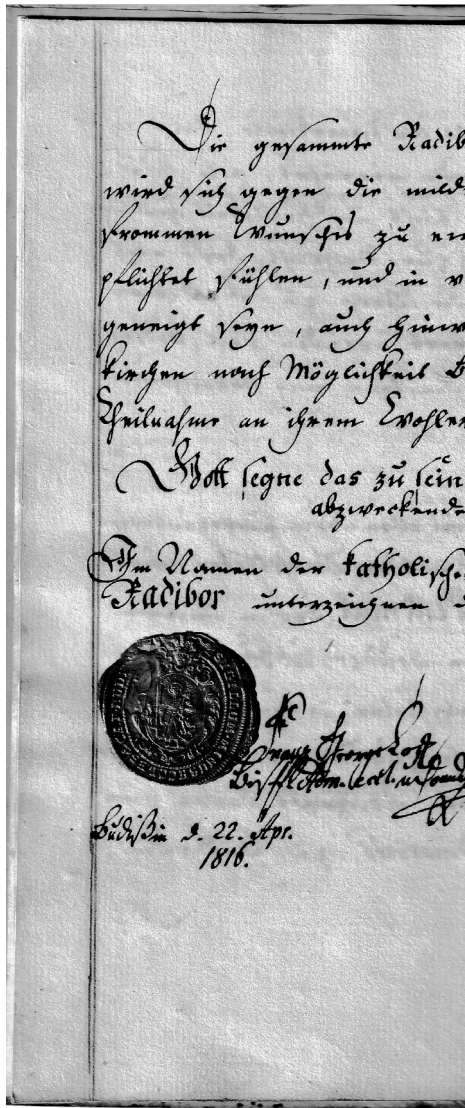 Die gesammte Radib
wird sich gegen die mild
frommen Wunsches zu ei
pflichtet fühlen, und in v
geneigt seyn, auch hinw
kirchen nach Möglichkeit B
Theilnahme an ihrem Wohler
Gott segne das zu sein
abzweckende
Im Namen der katholische
Radibor unterzeichnen d
Franz George Lock
Bischfl.
Budißin d. 22. Apr.
1816.